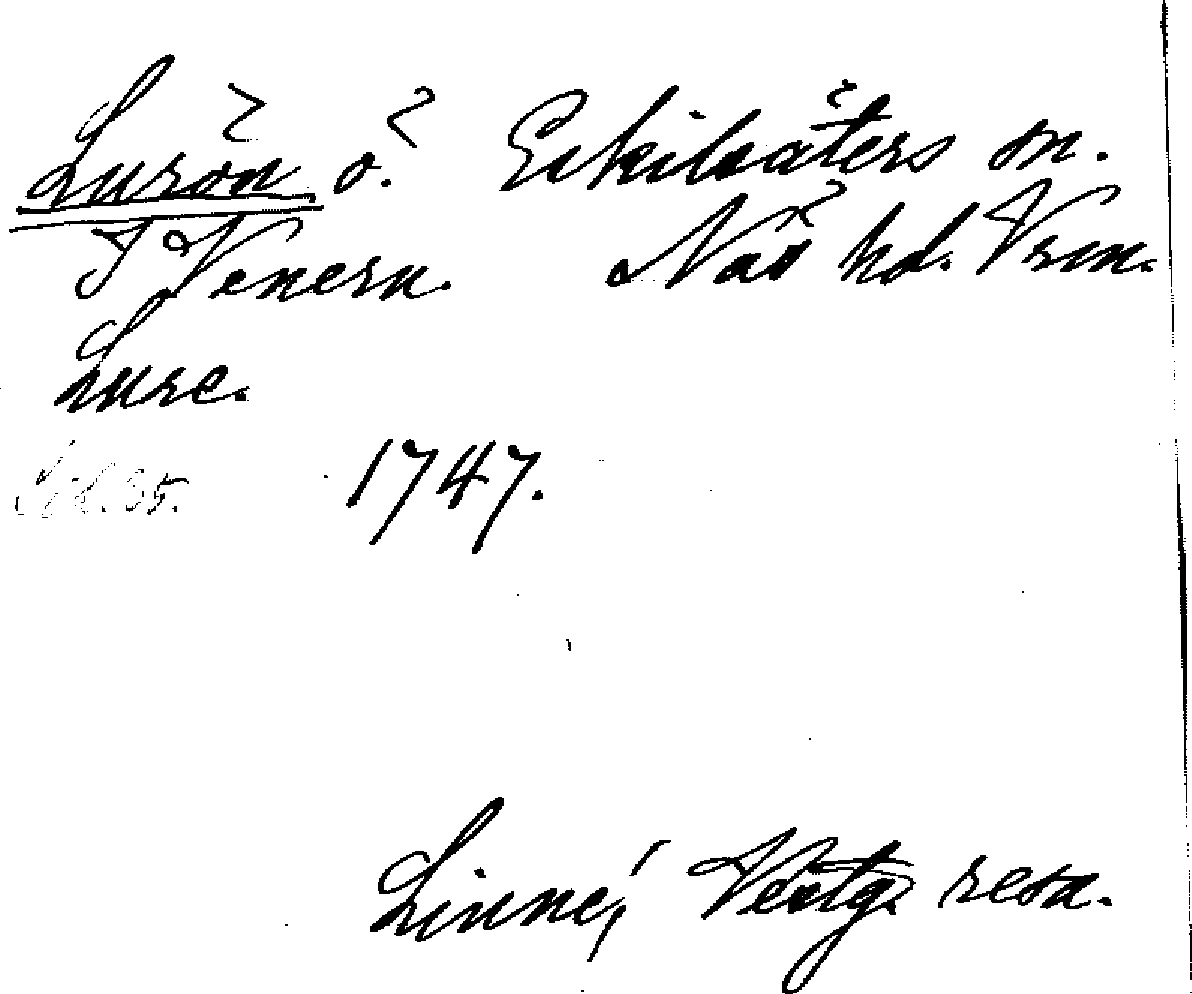 Lurön ö. Eskilsäters sn.
I Venern. Näs hd. Vrm.
Lure.
1747.
Linné, Vestg. resa.